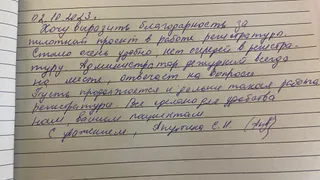 02.10.2023г.
Хочу выразить благодарность за
пилотный проект в работе регистратуре.
Стало очень удобно, нет очередей в регистра-
туру. Администратор дежурный всегда
на месте, отвечает на вопросы
Пусть продолжается и дальше такая работа
регистратуре. Все сделано для удобства
нам вашим пациентам.
С уважением, С.И.